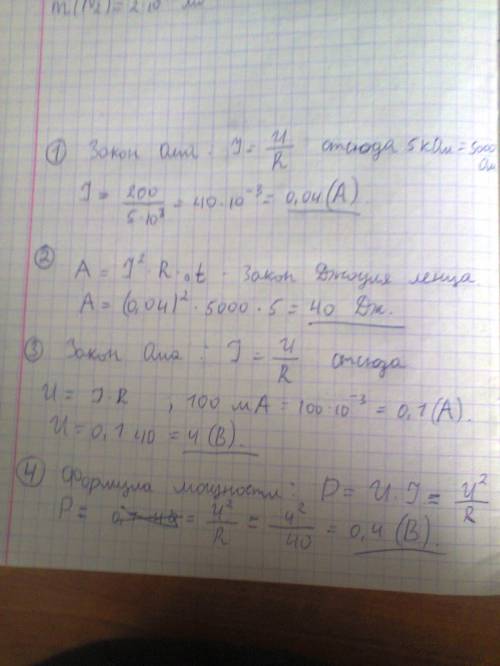 m(N₂)=2·10
① Закон Ома: I = U/R отсюда 5 кОм = 5000 Ом
I = 200/5·10³ = 40·10⁻³ = 0,04 (А)
② A = I² · R · t - Закон Джоуля ленца.
A = (0,04)² · 5000 · 5 = 40 Дж.
③ Закон Ома: I = U/R отсюда
U = I·R , 100 мА = 100·10⁻³ = 0,1 (А).
U = 0,1·40 = 4 (В).
④ Формула мощности: P = U·I = U²/R
P = = U²/R = 4²/40 = 0,4 (В).